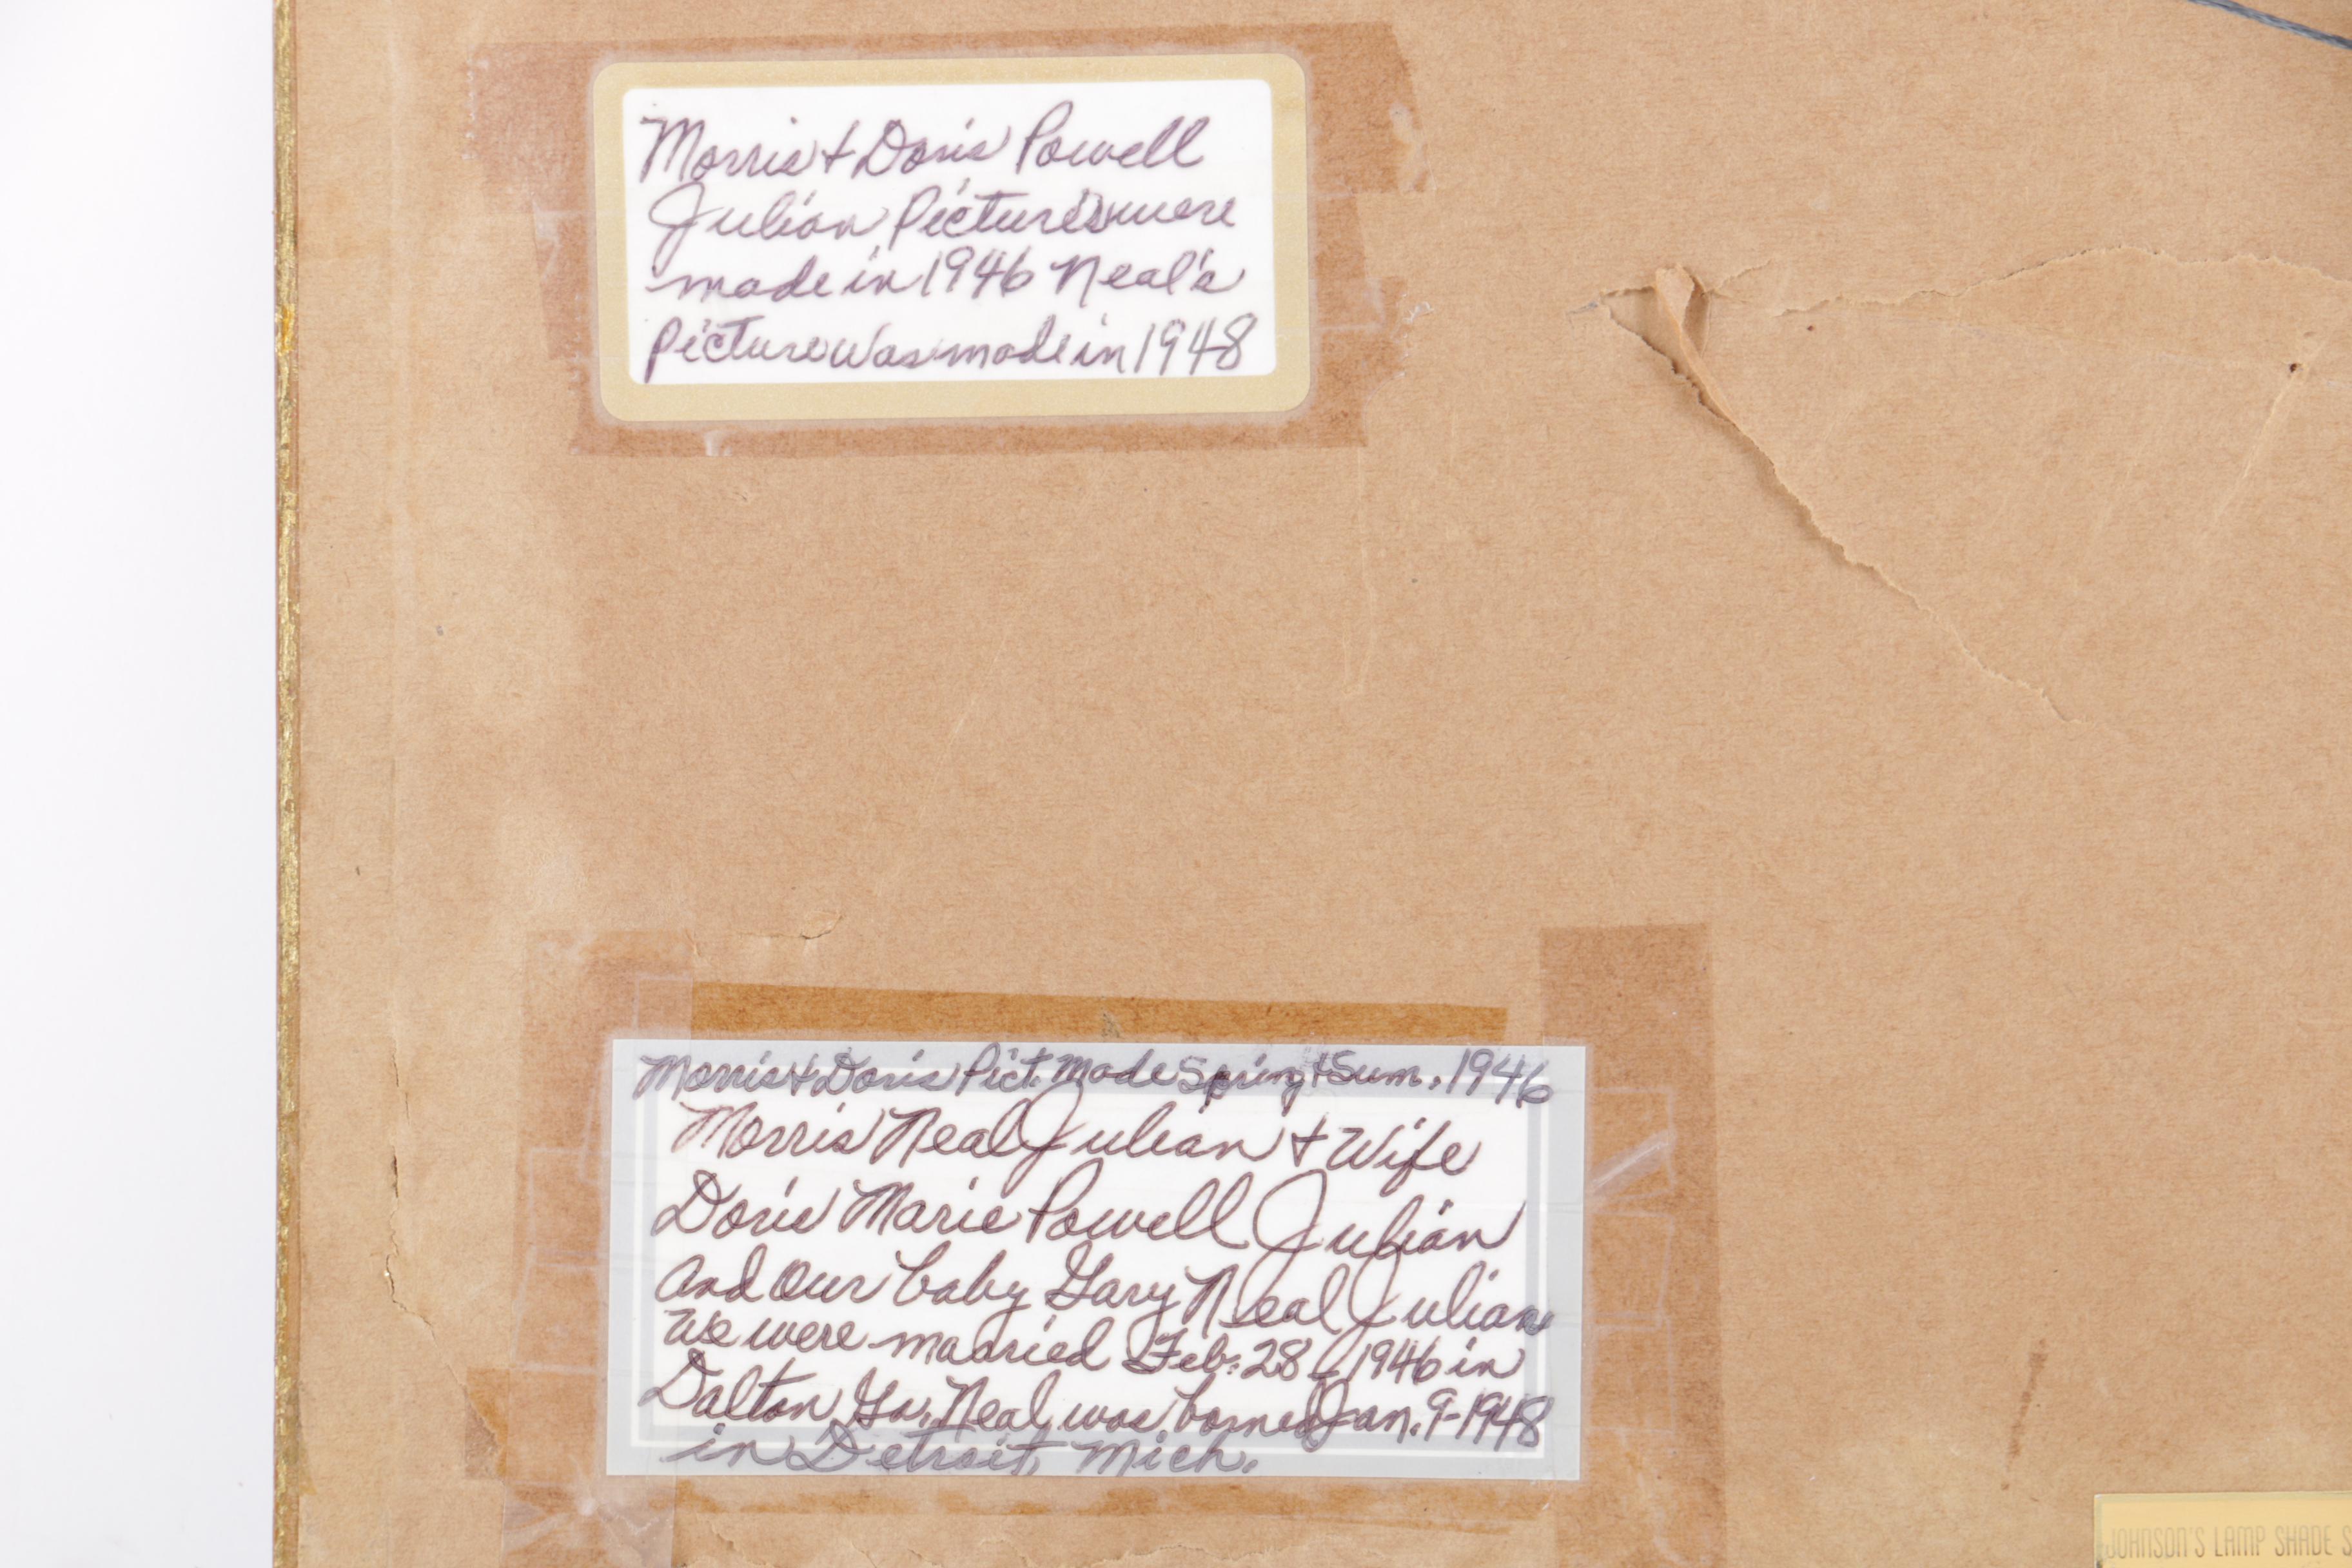 Morris + Doris Powell
Julian Pictures were
made in 1946 Neal's
Picture was made in 1948
Morris + Doris Pict. Made Spring + Sum. 1946
Morris Neal Julian + Wife
Doris Marie Powell Julian
and our baby Gary Neal Julian
We were married Feb. 28 - 1946 in
Dalton Ga. Neal was borned Jan. 9-1948
in Detroit, Mich.
JOHNSON'S LAMP SHADE